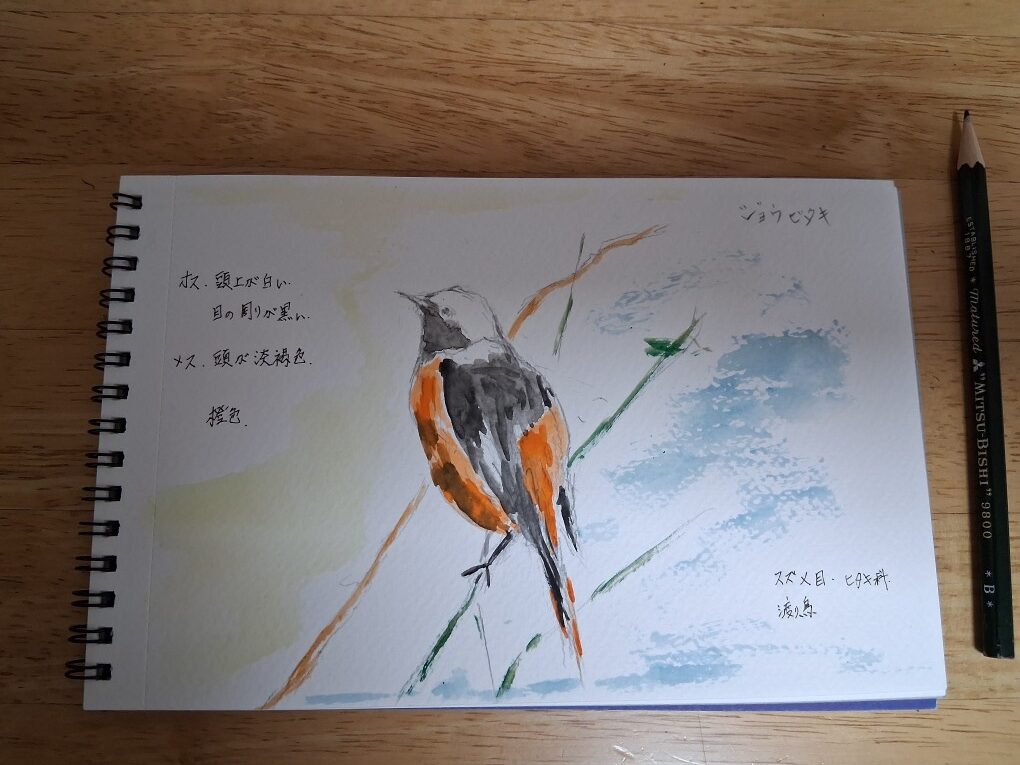 ジョウビタキ
オス. 頭上が白い.
目の周りが黒い.
メス. 頭が淡褐色.
橙色.
スズメ目・ヒタキ科.
渡り鳥
ESTABLISHED 1887 * Matured "MITSU-BISHI" 9800 * B *